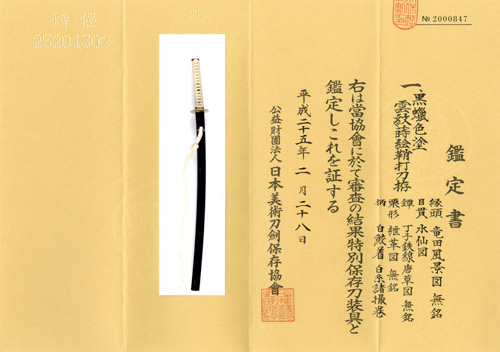 № 2000847
鑑定書
一、黒蠟色塗
雲紋蒔絵鞘打刀拵
縁頭 竜田風景図 無銘
目貫 水仙図
鐔 丁子鉄線唐草図 無銘
栗形 無銘
柄 白鮫着 白糸諸撮巻
右は當協會に於て審査の結果特別保存刀装具と
鑑定しこれを証する
平成二十五年 二月 二十八日
公益財團法人 日本美術刀劍保存協會
25201302